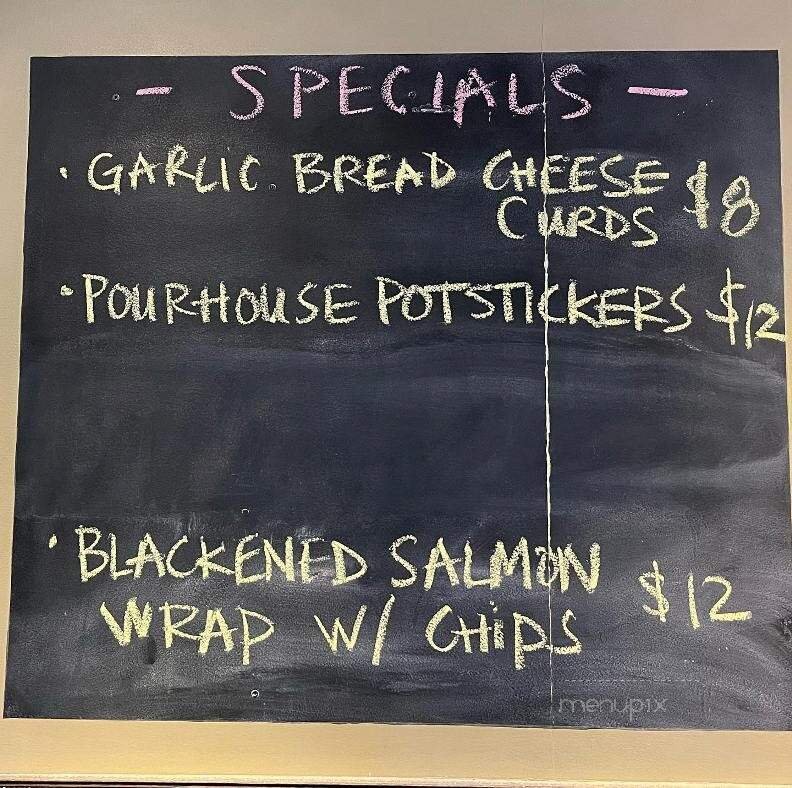 - SPECIALS -
• GARLIC BREAD CHEESE $8
CURDS
• POURHOUSE POTSTICKERS $12
• BLACKENED SALMON $12
WRAP W/ CHIPS
menupix